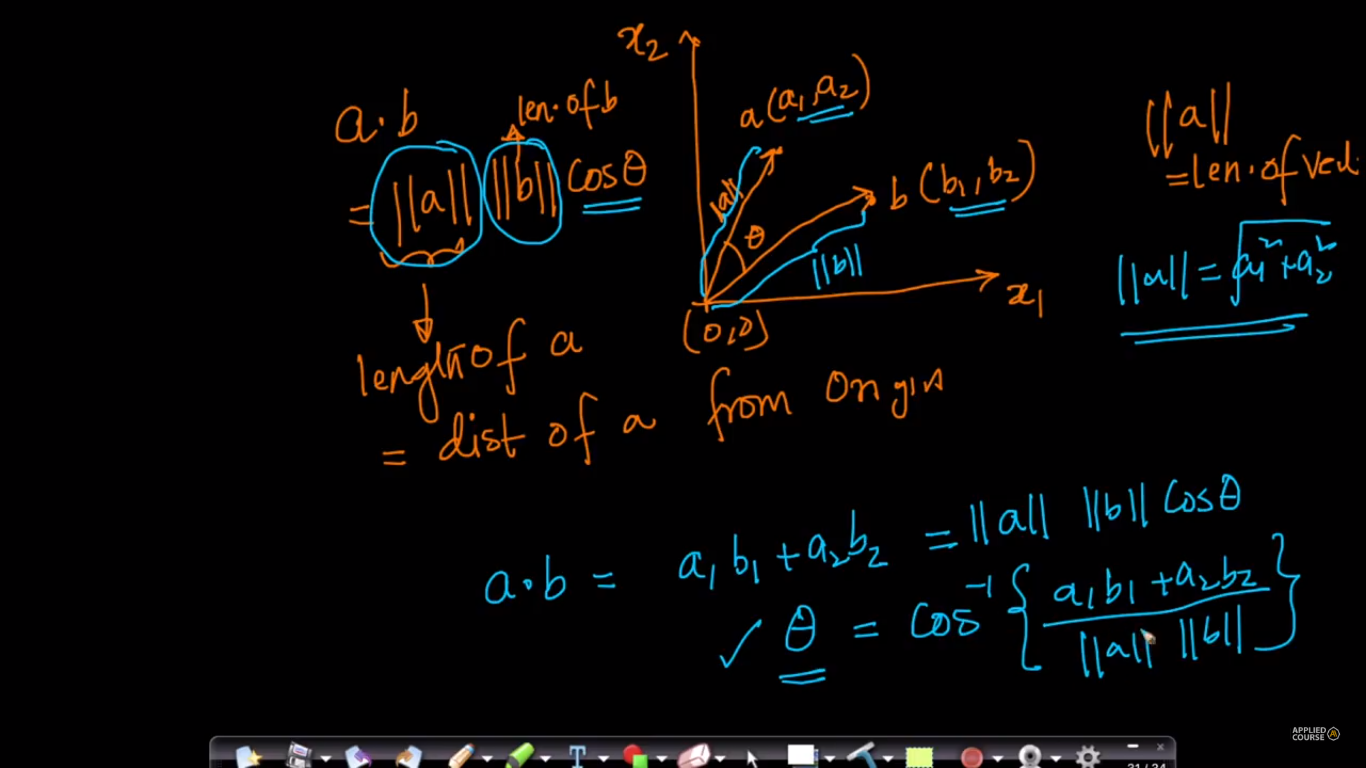 a·b
= ||a|| ||b|| cosθ
len. of b
length of a
= dist of a from origin
x₂
a (a₁, a₂)
||a||
θ
b (b₁, b₂)
||b||
x₁
(0,0)
||a||
= len. of vec.
||a|| = √a₁² + a₂²
a·b = a₁b₁ + a₂b₂ = ||a|| ||b|| cosθ
✓ θ = cos⁻¹ { a₁b₁ + a₂b₂ / ||a|| ||b|| }
APPLIED
COURSE